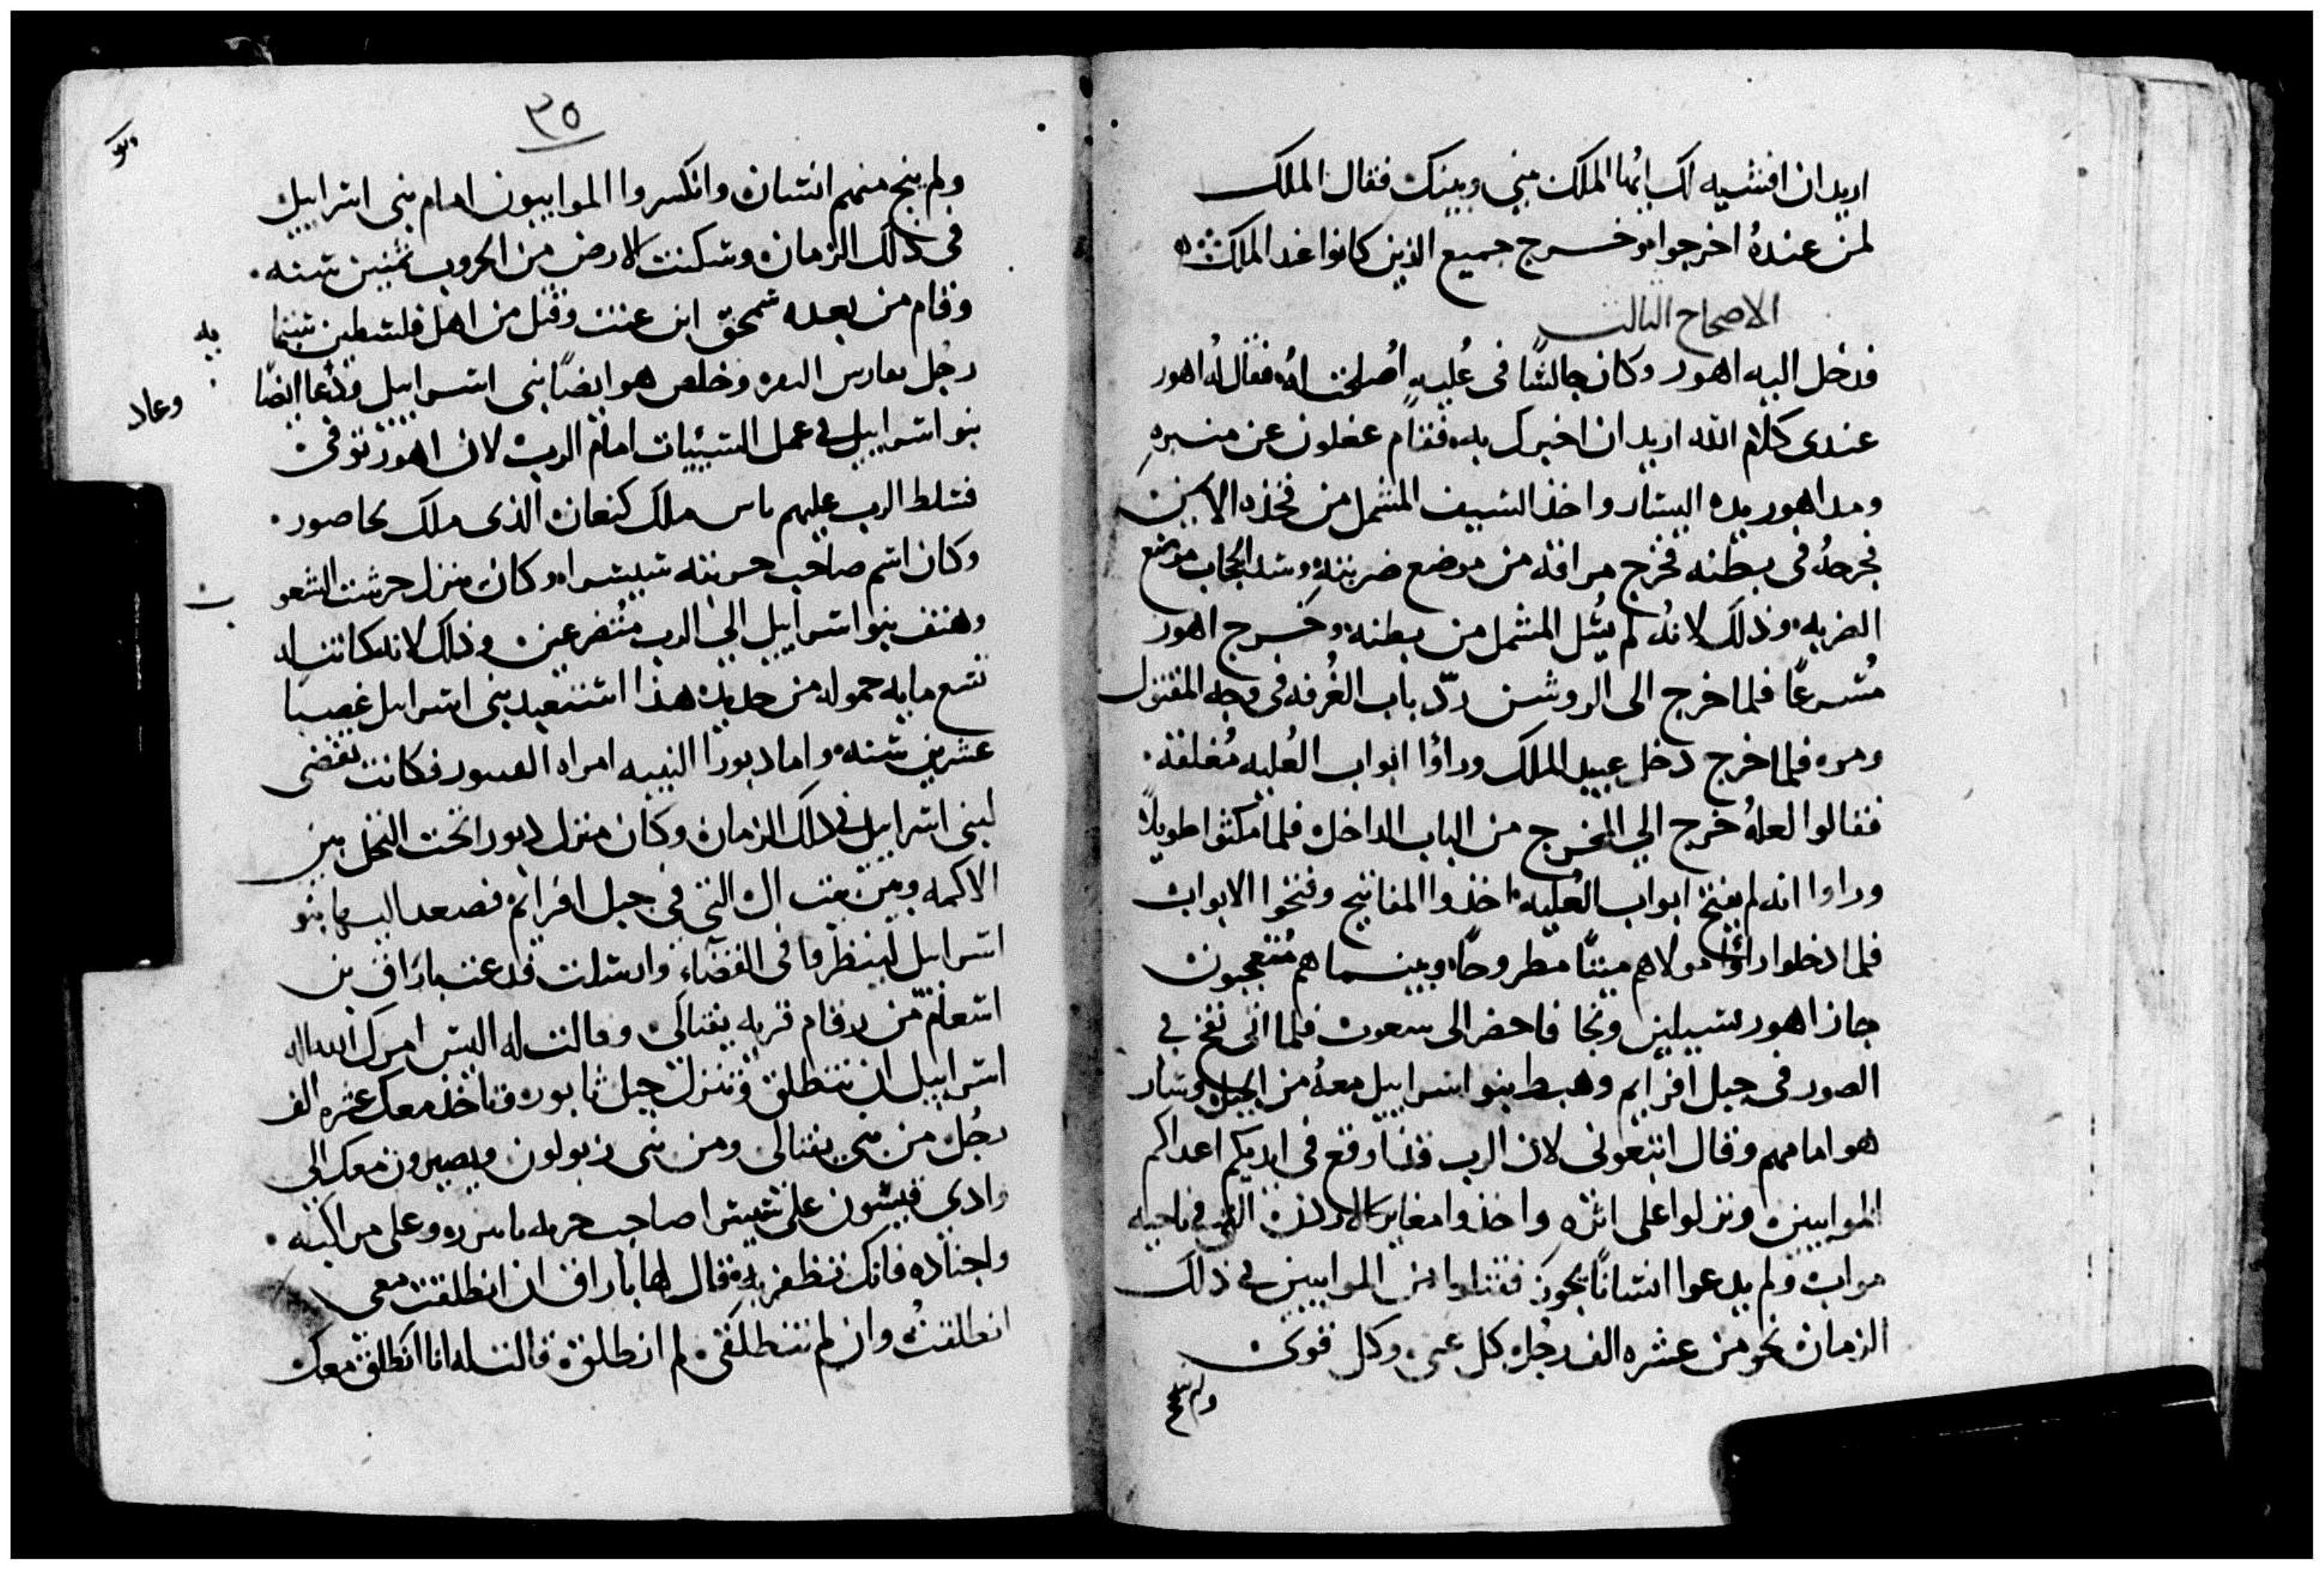 اريد ان افشيه لك ايها الملك بيني وبينك فقال الملك
لمن عنده اخرجوا وخرج جميع الذين كانوا عند الملك
الاصحاح الثالث
فدخل اليه اهور وكان جالسًا في عُليه اُصلحت له فقال له اهور
عندي كلام الله اريد ان اخبرك به فقام عغلون عن منبره
ومد اهور يده اليسار واخذ السيف المشمل من فخذه الايمن
فجرحهُ في بطنه فخرج مراقه من موضع ضربته وسد الحجاب موضع
الضربه وذلك لانهُ لم يُسل المشمل من بطنه وخرج اهور
مُسرعًا فلما خرج الى الروشن ردّ باب الغُرفه في وجه المقتول
ومره فلما خرج دخل عبيد الملك وراؤا ابواب العُليه مُغلقة
فقالوا لعلهُ خرج الي المخرج من الباب الداخل فلما مكثوا طويلاً
وراوا انه لم يفتح ابواب العُليه اخذوا المفاتيح وفتحوا الابواب
فلما دخلوا راؤا مولاهم ميتًا مطروحًا وبينما هم مُتعجبون
جاز اهور سبيلين ونجا فاحضر الى سعوت فلما اتى نفخ في
الصور في جبل افرايم وهبط بنو اسراييل معهُ من الجبل وسار
هو امامهم وقال اتبعوني لان الرب قد اوقع في ايديكم اعداكم
الموابيين ونزلوا على اثره واخذوا معابر الاردن التي في ناحيه
مواب ولم يدعوا انسانًا يجوز فقتلوا من الموابيين في ذلك
الزمان نحو من عشره الف رجل كل عمي وكل قوي
ولم ينج
٣٥
ولم ينج منهم انسان وانكسروا الموابيون امام بني اسراييل
في ذلك الزمان وسكنت الارض من الحروب ثمنين سنه
وقام من بعده شمحق ابن عنت وقتل من اهل فلسطين ستما
يه
رجُل بفارس البقره وخلص هو ايضًا بني اسراييل ودعا ايضًا
وعاد
بنو اسراييل في عمل السيئيات امام الرب لان اهور توفي
فسلط الرب عليهم يابين ملك كنعان الذي ملك بحاصور
وكان اسم صاحب حربته سيسرا وكان منزل حرشت الشعو
ب
وهتف بنو اسراييل الي الرب متضرعين وذلك لانه كانت له
تسع مايه حموله من حديد هذا استعبد بني اسرايل غصبًا
عشرين سنه واما دبورا النبيه امراه الفيدور فكانت تقضي
لبني اسراييل في ذلك الزمان وكان منزل دبورا تحت النخل بين
الاكمه وبين بيت ال التي في جبل افرايم فصعد اليها بنو
اسراييل لينظروا في القضاء وارسلت فدعت باراق بن
اسعام من رقام قريه نفتالي وقالت له اليس امرك الله اله
اسراييل ان تنطلق وتنزل جبل ثابور وتاخذ معك عشره الف
رجُل من بني نفتالي ومن بني زبولون ويصيرون معك الي
وادي قيسون على سيسرا صاحب حربه يابين وعلى مراكبه
واجناده فانك تظفر به قال لها باراق ان انطلقت معي
انطلقتُ وان لم تنطلقي لم انطلق قالت له انا انطلق معك